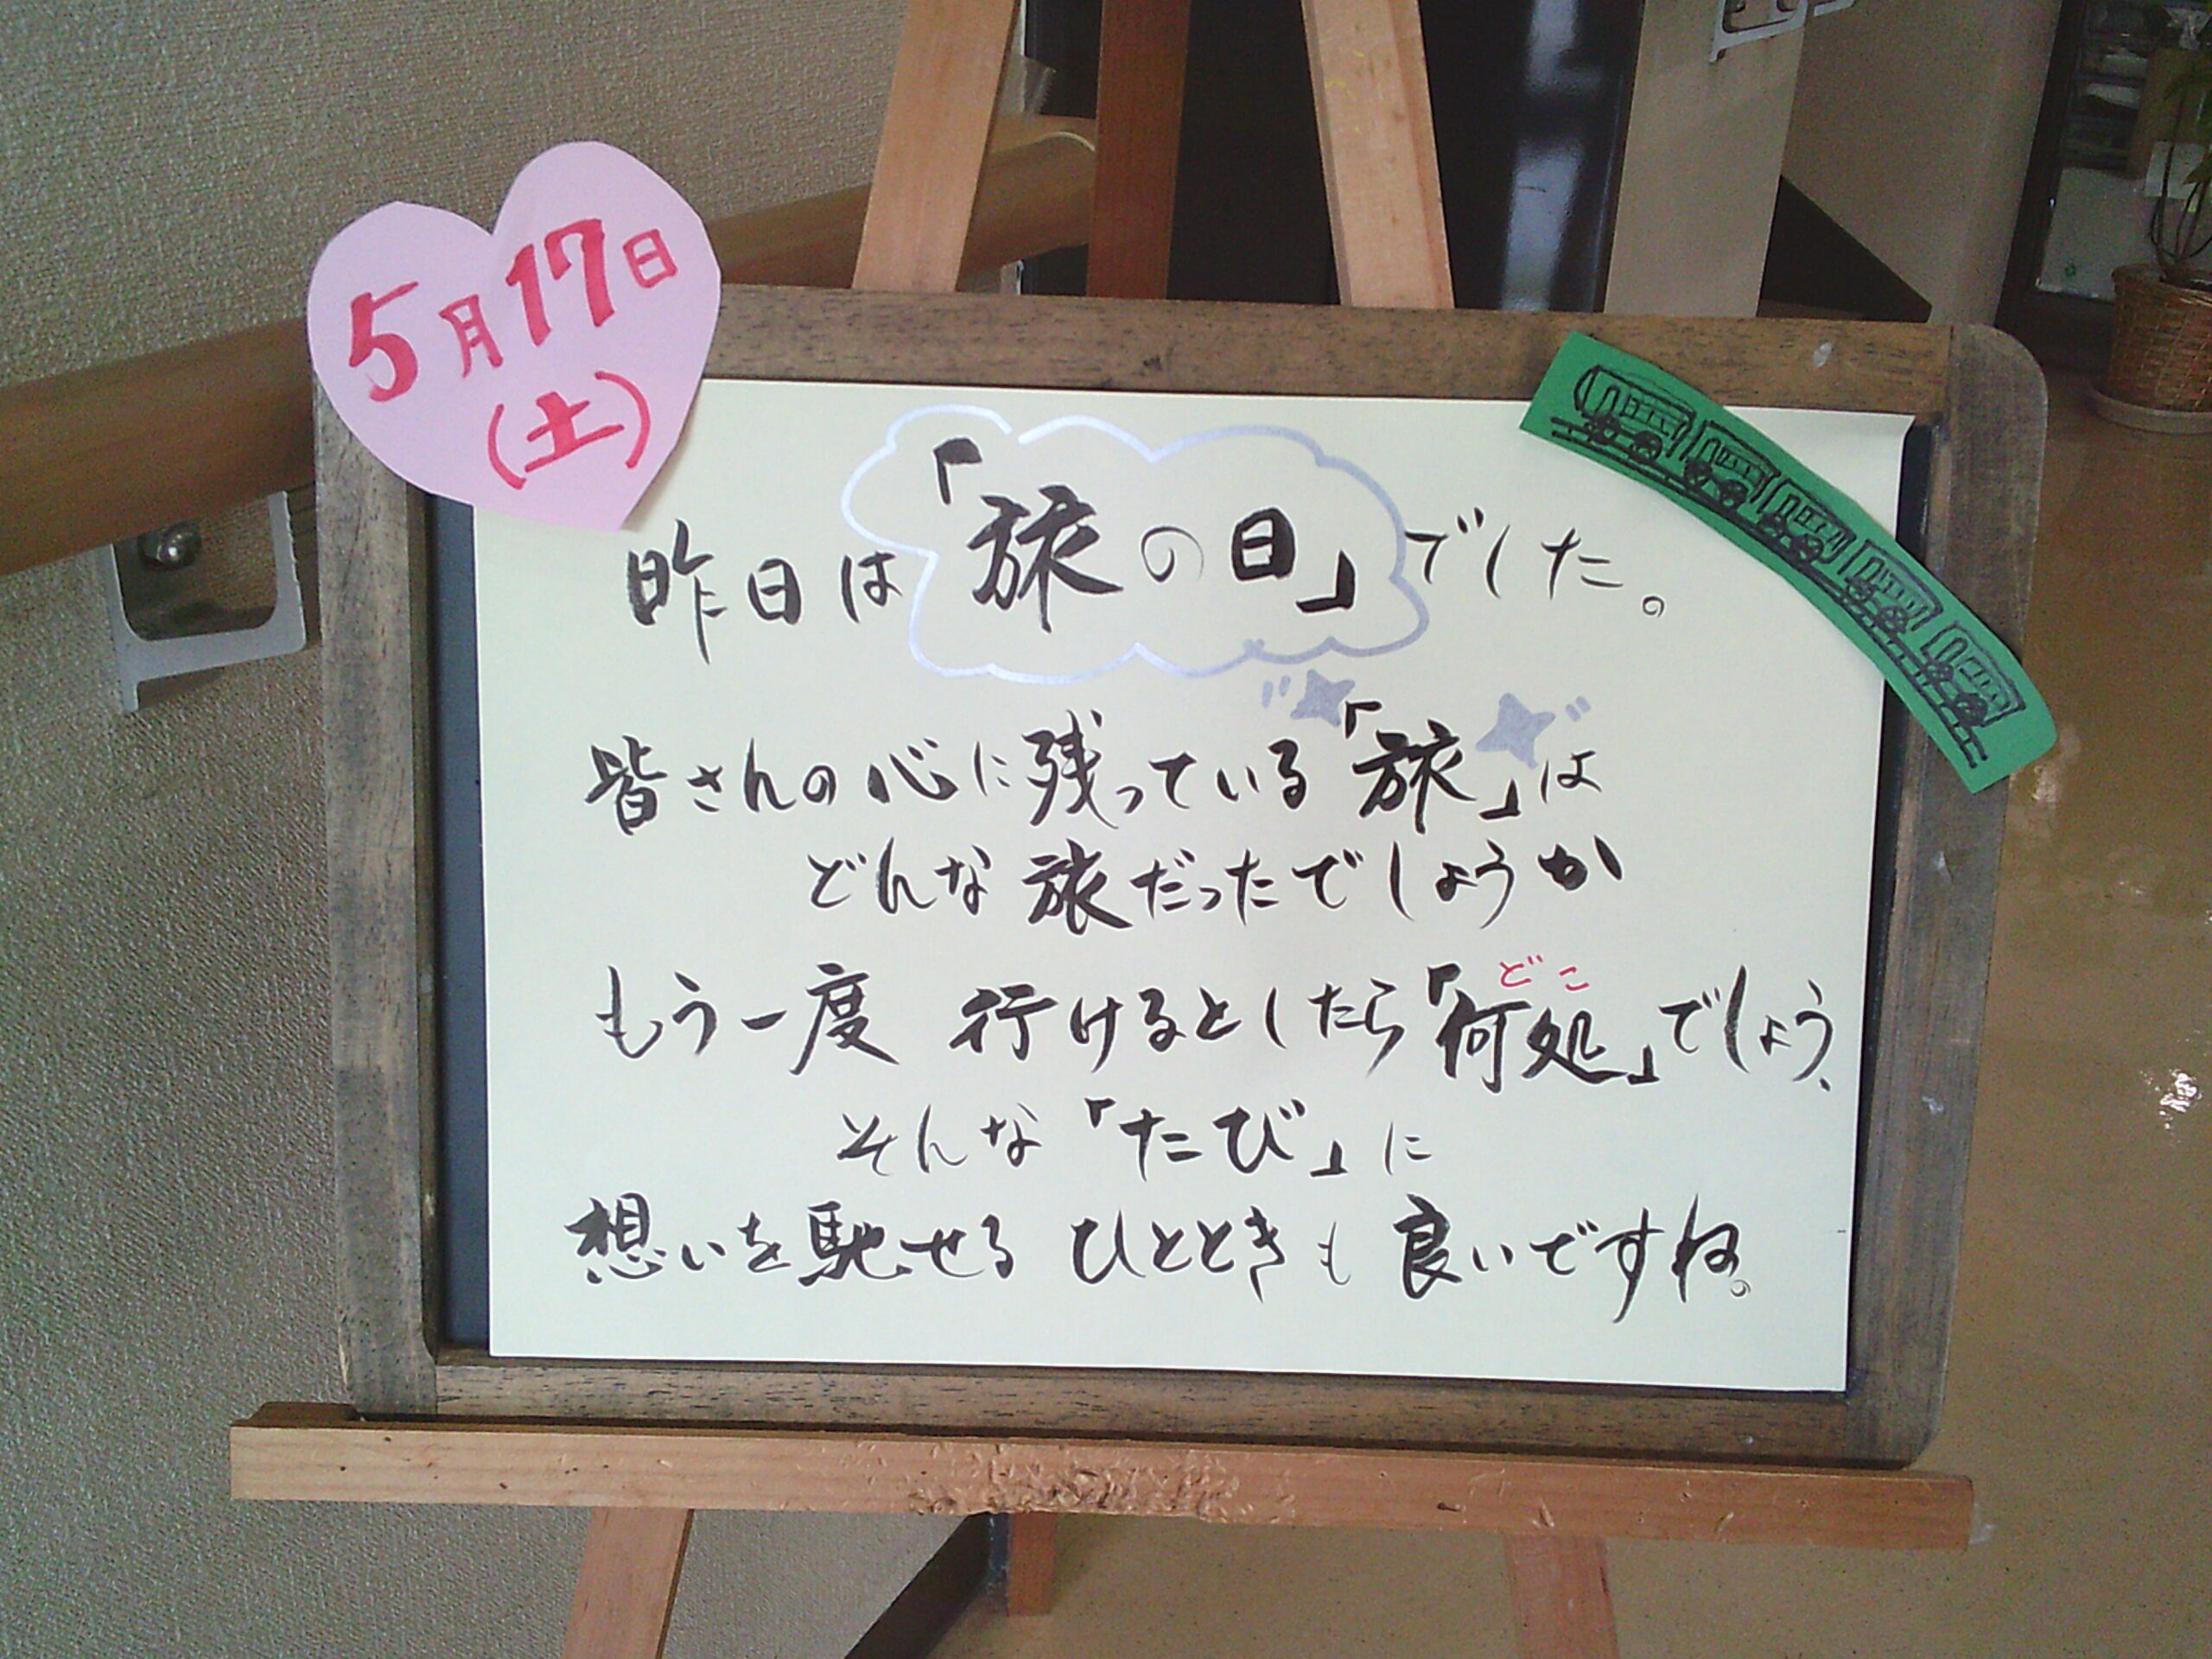 5月17日
(土)
昨日は「旅の日」でした。
皆さんの心に残っている「旅」は
どんな旅だったでしょうか
どこ
もう一度 行けるとしたら「何処」でしょう、
そんな「たび」に
想いを馳せる ひとときも 良いですね。